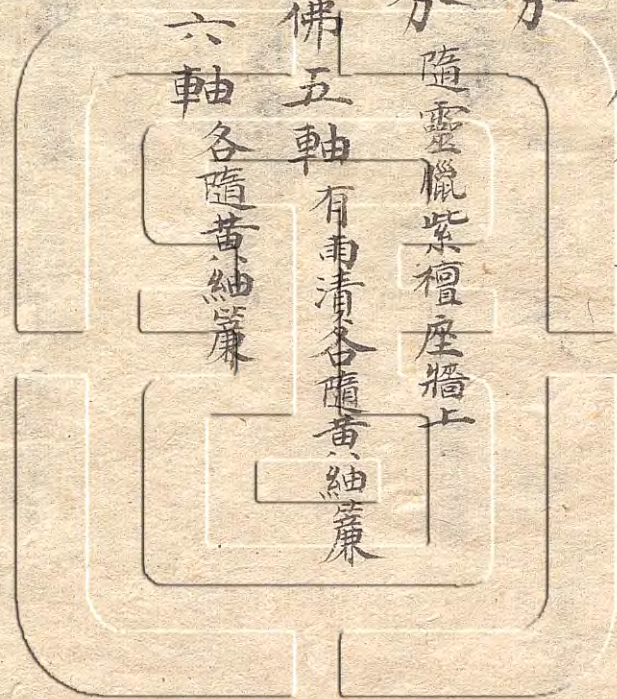 隨靈臘紫檀座牆上
佛五軸有雨漬各隨黃紬簾
六軸各隨黃紬簾